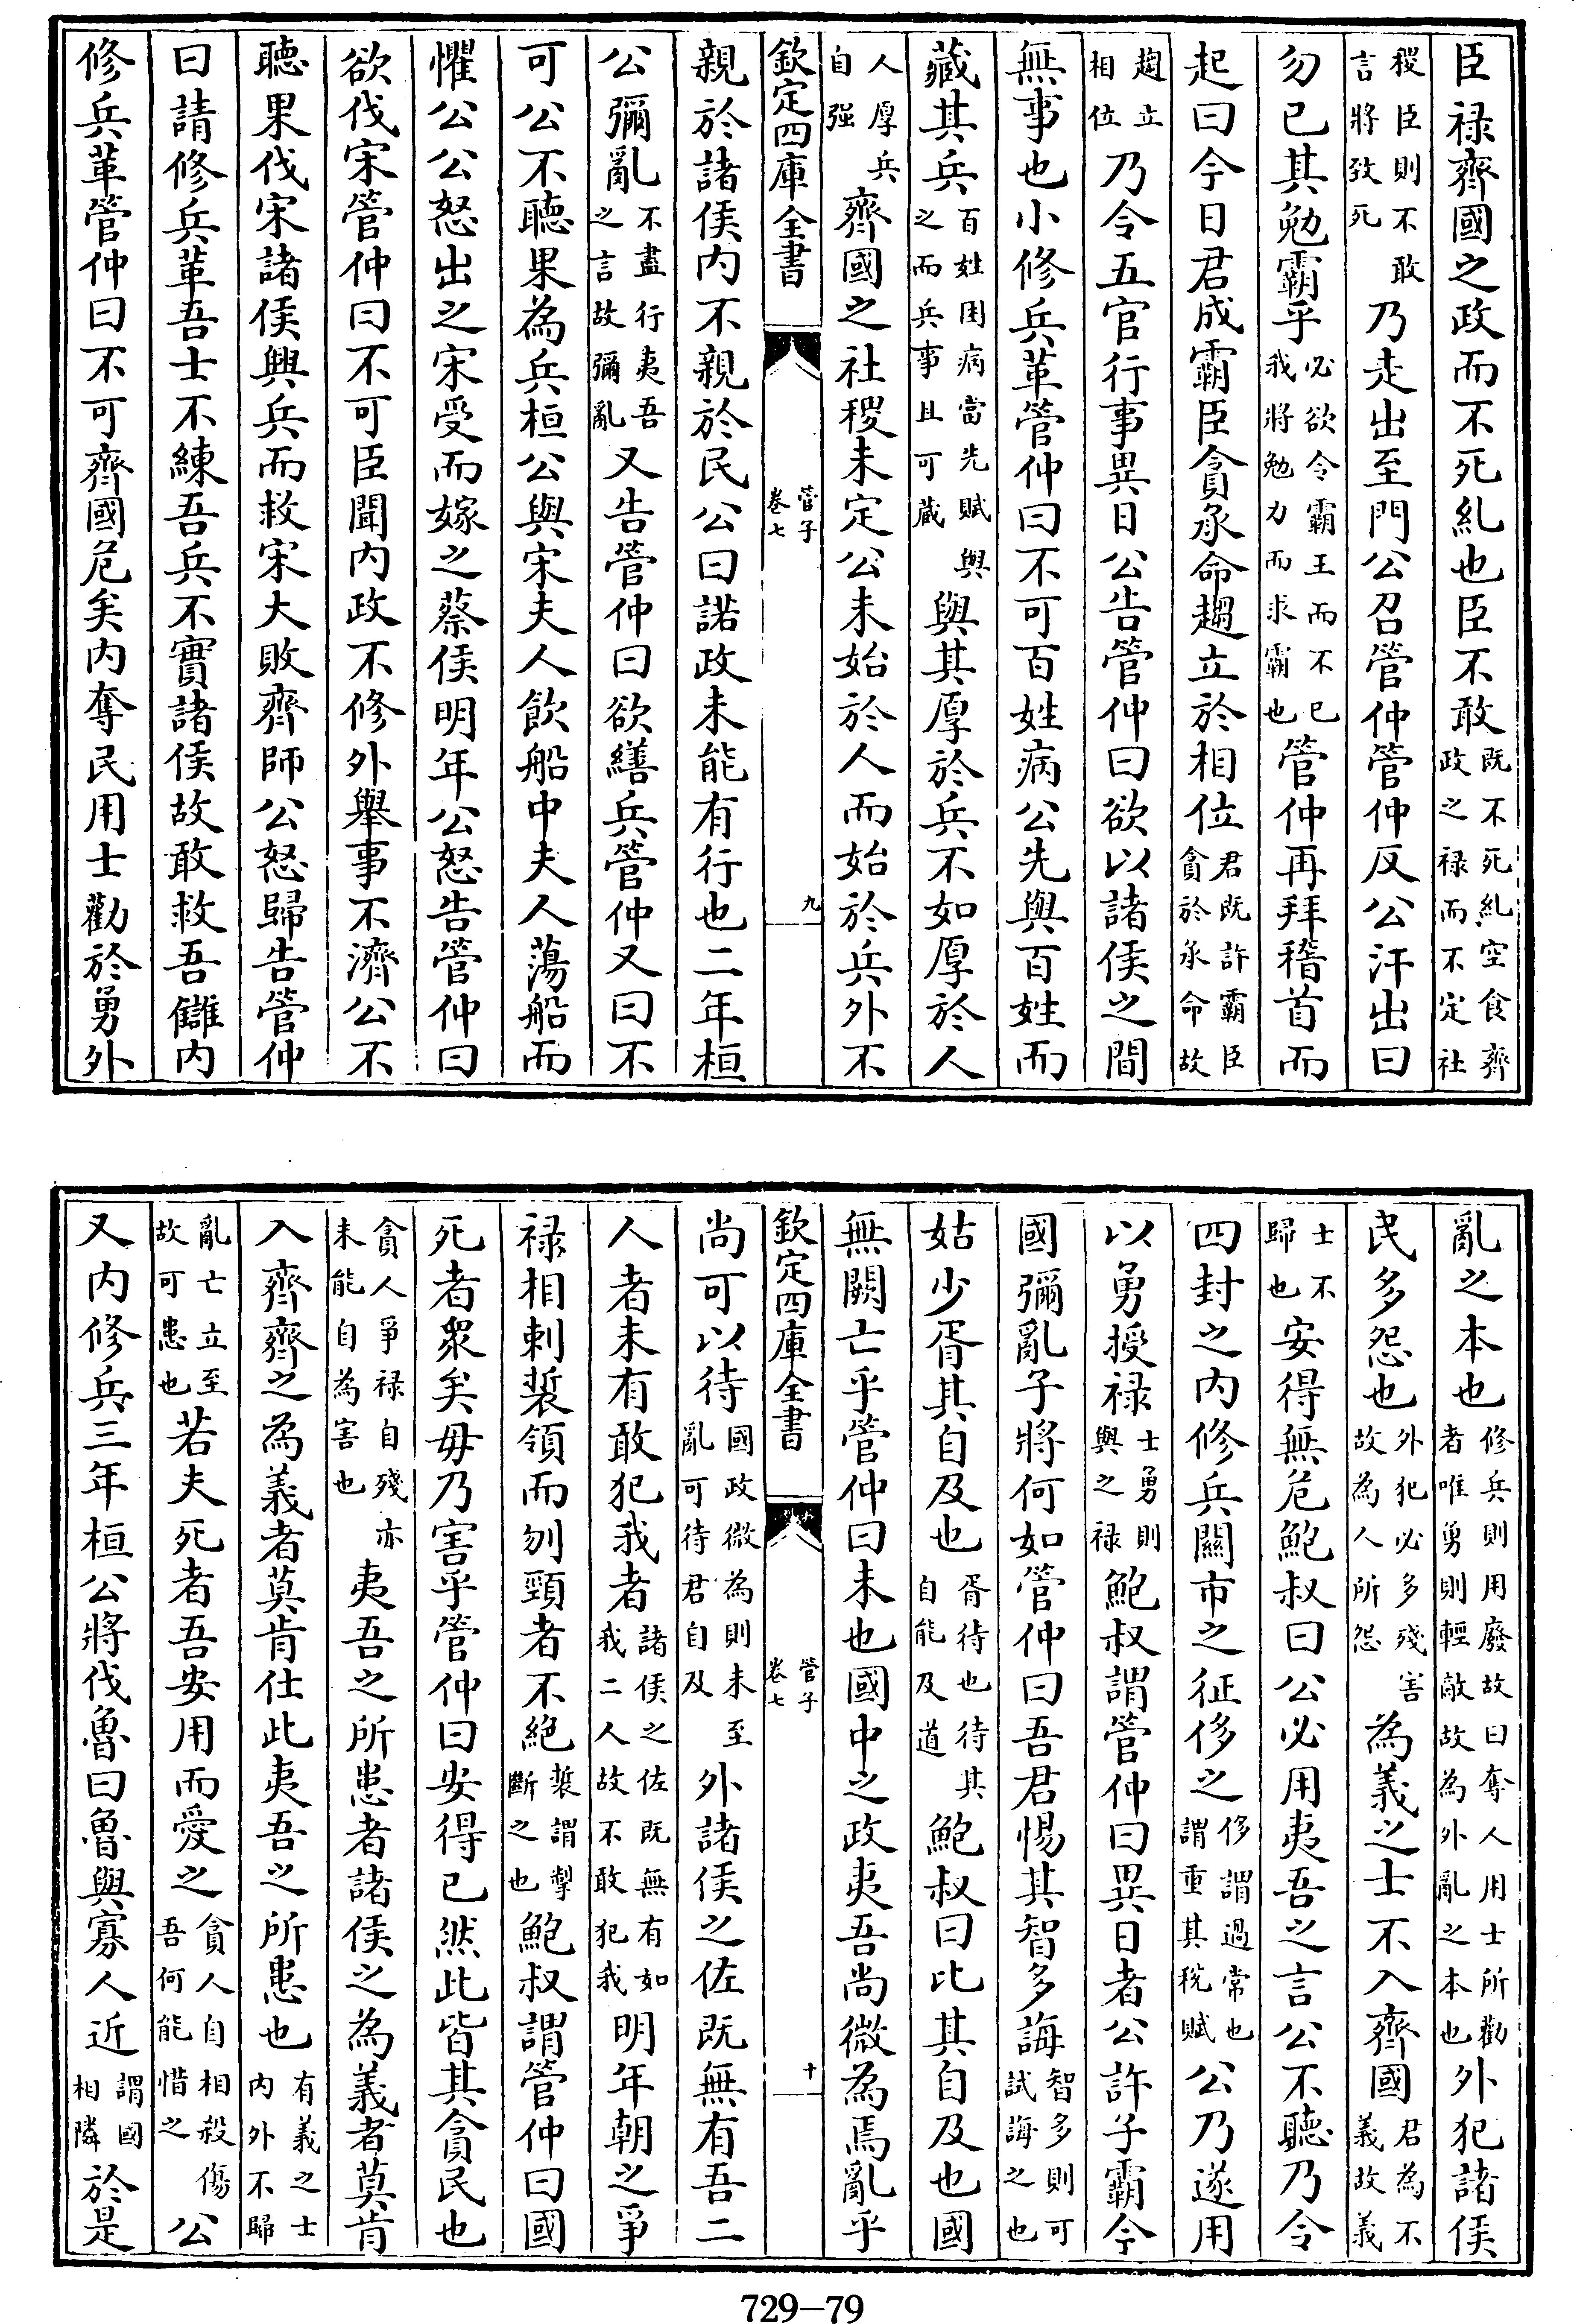 臣禄齊國之政而不死糺也臣不敢既不死糺空食齊政之禄而不定社
稷臣則不敢言將致死乃走出至門公召管仲管仲反公汗出曰
勿已其勉霸乎必欲令霸王而不已我將勉力而求霸也管仲再拜稽首而
起曰今日君成霸臣貪承命趨立於相位君既許霸臣貪於承命故
趨立相位乃令五官行事異日公告管仲曰欲以諸侯之間
無事也小修兵革管仲曰不可百姓病公先與百姓而
藏其兵百姓困病當先賦與之而兵事且可藏與其厚於兵不如厚於人
人厚兵自强齊國之社稷未定公未始於人而始於兵外不
欽定四庫全書 管子 卷七 九
親於諸侯内不親於民公曰諾政未能有行也二年桓
公彌亂不盡行夷吾之言故彌亂又告管仲曰欲繕兵管仲又曰不
可公不聽果為兵桓公與宋夫人飲船中夫人蕩船而
懼公公怒出之宋受而嫁之蔡侯明年公怒告管仲曰
欲伐宋管仲曰不可臣聞内政不修外舉事不濟公不
聽果伐宋諸侯興兵而救宋大敗齊師公怒歸告管仲
曰請修兵革吾士不練吾兵不實諸侯故敢救吾讎内
修兵革管仲曰不可齊國危矣内奪民用士勸於勇外
亂之本也修兵則用廢故曰奪人用士所勸者唯勇則輕敵故為外亂之本也外犯諸侯
民多怨也外犯必多殘害故為人所怨為義之士不入齊國君為不義故義
士不歸也安得無危鮑叔曰公必用夷吾之言公不聽乃令
四封之内修兵關市之征侈之侈謂過常也謂重其稅賦公乃遂用
以勇授禄士勇則與之禄鮑叔謂管仲曰異日者公許子霸今
國彌亂子將何如管仲曰吾君惕其智多誨智多則可試誨之也
姑少胥其自及也胥待也待其自能及道鮑叔曰比其自及也國
無闕亡乎管仲曰未也國中之政夷吾尚微為焉亂乎
欽定四庫全書 管子 卷七 十
尚可以待國政微為則未至亂可待君自及外諸侯之佐既無有吾二
人者未有敢犯我者諸侯之佐既無有如我二人故不敢犯我明年朝之爭
禄相刺裚領而刎頸者不絶裚謂掣斷之也鮑叔謂管仲曰國
死者衆矣毋乃害乎管仲曰安得已然此皆其貪民也
貪人爭禄自殘亦未能自為害也夷吾之所患者諸侯之為義者莫肯
入齊齊之為義者莫肯仕此夷吾之所患也有義之士内外不歸
亂亡立至故可患也若夫死者吾安用而愛之貪人自相殺傷吾何能惜之公
又内修兵三年桓公將伐魯曰魯與寡人近謂國相隣於是
729—79